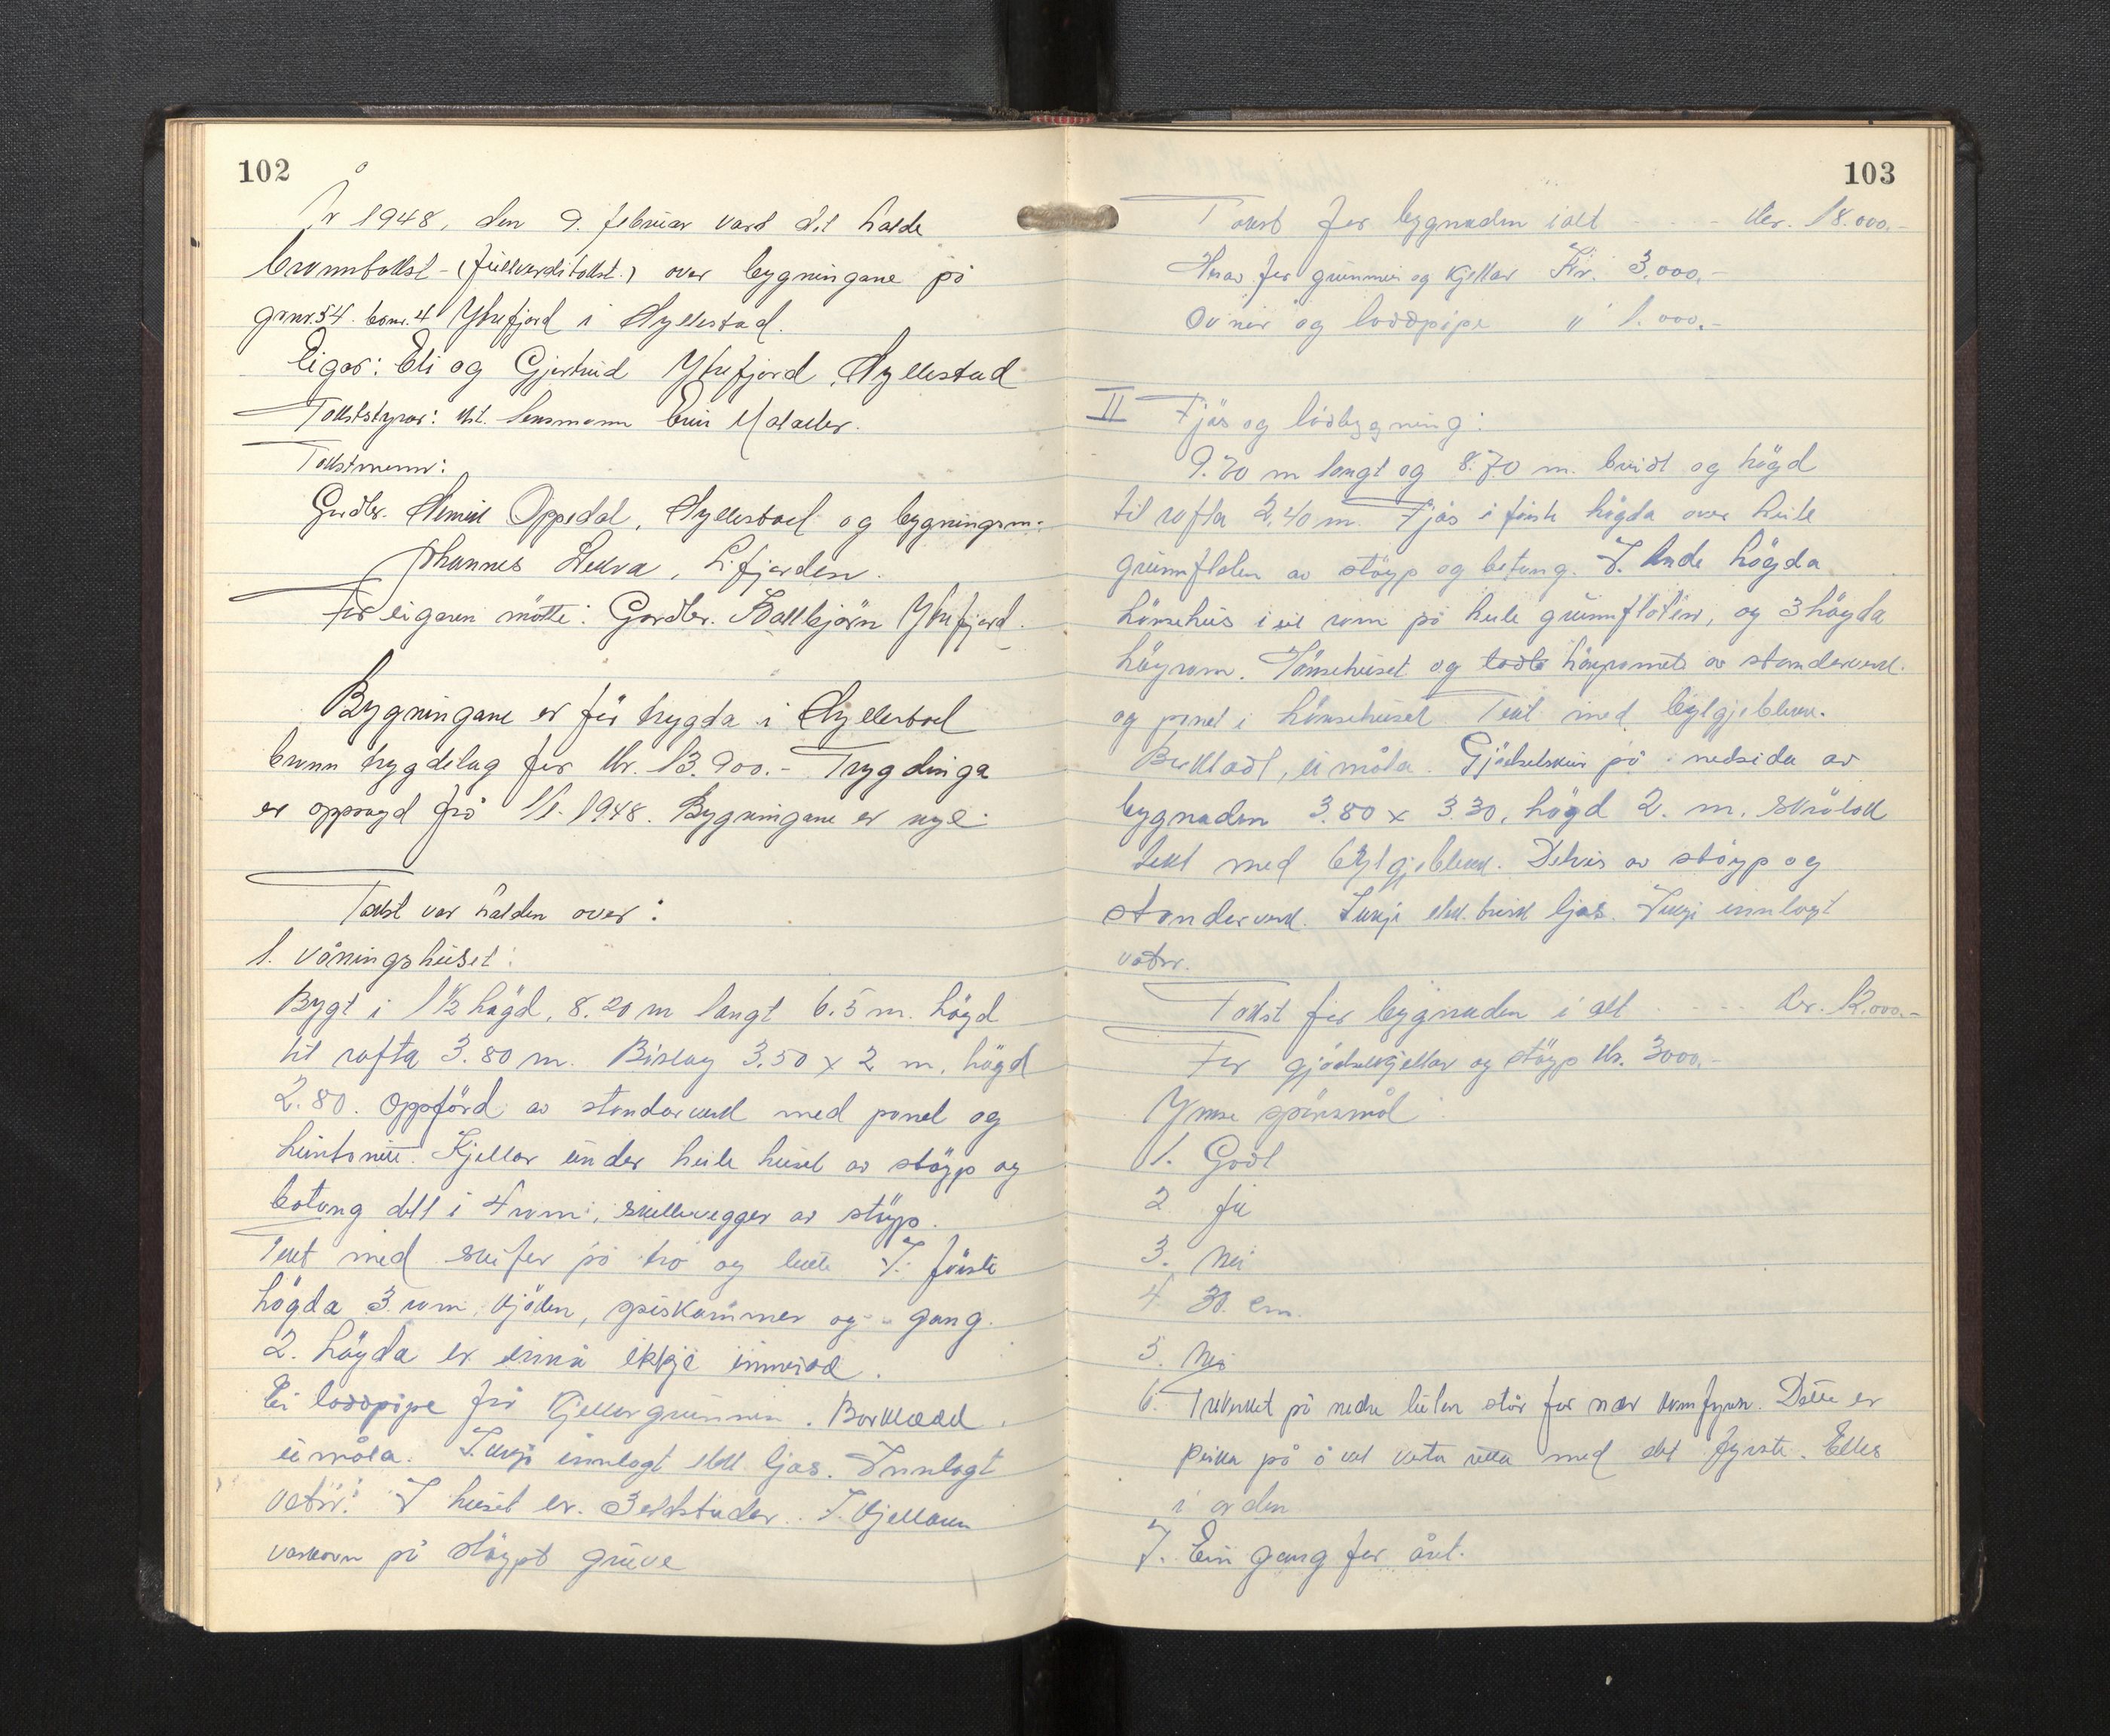 102
År 1948, den 9. februar vart det halde
branntakst- (fullverditakst.) over bygningane på
grnr. 54. brnr. 4 Ytrefjord i Hyllestad.
Eigar: Eli og Gjertrud Ytrefjord, Hyllestad
Takststyrar: kst. lensmann
Takstmenn:
Gardbr. Oppedal, Hyllestad og bygningsm.
Johannes Lekva, Lifjorden.
For eigaren møtte: Gardbr. Hallbjørn Ytrefjord.
Bygningane er før trygda i Hyllestad
brann trygdelag for Kr. 13.900.- Trygdinga
er oppsagd frå 1/1-1948. Bygningane er nye.
Takst var halden over:
1. Våningshuset:
Bygt i 1½ høgd, 8.20 m langt 6.5 m. høgd
til rafta 3.80 m. Bislag 3.50 x 2 m, høgd
2.80. Oppførd av standarverk med panel og
huntonitt. Kjellar under heile huset av støyp og
betong delt i 4 rom, skilleveggar av støyp.
Tekt med skifer på tro og lekte. I første
høgda 3 rom, kjøken, spiskammer og gang.
2. høgda er ennå ikkje innreidd.
Ei loddpipe frå Kjellargrunnen. Bordkledd
ei måla. Ikkje innlagt elek ljos. Innlagt
vatn. I huset er 3 eldstader. I kjellaren
vaskovn på støypt grue
103
Takst for bygnaden ialt - - - - Kr. 18.000.-
Herav for grunnmur og kjellar Kr. 3.000.-
Ovner og loddpipe " 1.000.-
II Fjøs og lødbygning:
9.70 m langt og 8.70 m. breidt og høgd
til rafta 2,40 m. Fjøs i første høgda over heile
grunnflaten av støyp og betong. I Andre høgda
hønsehus i eit rom på heile grunnflaten, og 3 høgda
høyrom. Hønsehuset og høyromet av standarverk.
og panel i hønsehuset Tekt med bylgjeblekk.
Bordkledt, ei måla. Gjødselskur på nedsida av
bygnaden 3.80 x 3.30, høgd 2. m. Skråtak
tekt med bylgjeblekk. Delvis av støyp og
standerverk. Ikkje elektrisk ljos. Ikkje innlagt
vatn.
Takst for bygnaden i alt - - - - Kr. 12.000.-
For gjødselkjellar og støyp Kr. 3000.-
Ymse spørsmål:
1. Godt
2 Ja
3. Nei
4 30. cm.
5. Nei
6. Treverket på nedre luken står for nær komfyren. Dette er
peika på å vert retta med det fyrste. Elles
i orden
7. Ein gang for året.